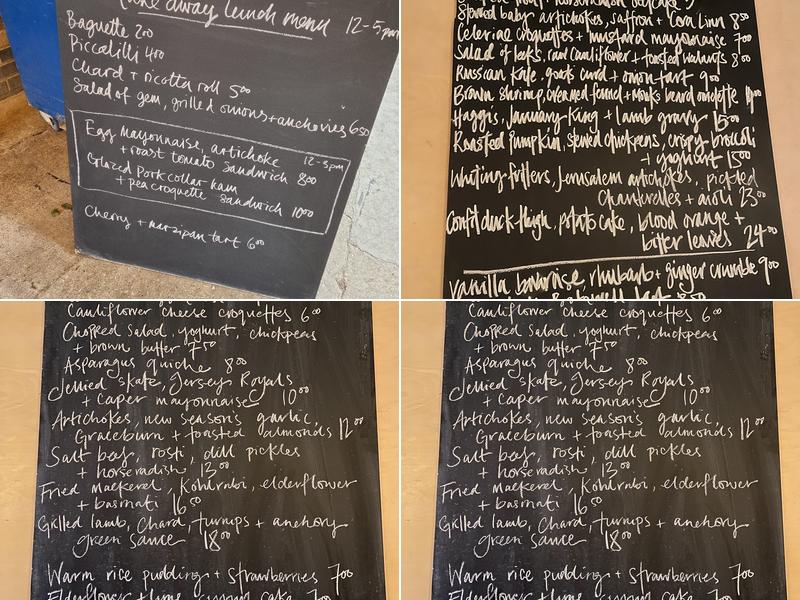 take away lunch menu 12-5pm
Baguette 200
Piccalilli 400
Chard + ricotta roll 500
Salad of gem, grilled onions + anchovies 650
Egg mayonnaise, artichoke 12-3pm
+ roast tomato sandwich 800
Glazed pork collar ham
+ pea croquette sandwich 1000
Cherry + marzipan tart 600
Stewed baby artichokes, saffron + 850
Celeriac croquettes + mustard mayonnaise 700
Salad of leeks, raw cauliflower + toasted walnuts 800
Russian kale, goats curd + onion tart 900
Brown shrimp, creamed fennel + monks beard omelette
Haggis, January King + lamb gravy 1500
Roasted pumpkin, stewed chickpeas, crispy broccoli
+ yoghurt 1500
Whiting fillets, Jerusalem artichokes, pickled
chanterelles + aioli 2300
Confit duck thigh, potato cake, blood orange +
bitter leaves 2400
Vanilla bavaroise, rhubarb + ginger crumble 900
Cauliflower cheese croquettes 600
Chopped salad, yoghurt, chickpeas
+ brown butter 750
Asparagus quiche 800
Jellied skate, Jersey Royals
+ caper mayonnaise 1000
Artichokes, new season's garlic,
Graceburn + toasted almonds 1200
Salt beef, rosti, dill pickles
+ horseradish 1300
Fried mackerel, Kohlrabi, elderflower
+ basmati 1650
Grilled lamb, Chard, turnips + anchovy
green sauce 1800
Warm rice pudding + strawberries 700
Elderflower + lime cake 700
Cauliflower cheese croquettes 600
Chopped salad, yoghurt, chickpeas
+ brown butter 750
Asparagus quiche 800
Jellied skate, Jersey Royals
+ caper mayonnaise 1000
Artichokes, new season's garlic,
Graceburn + toasted almonds 1200
Salt beef, rosti, dill pickles
+ horseradish 1300
Fried mackerel, Kohlrabi, elderflower
+ basmati 1650
Grilled lamb, Chard, turnips + anchovy
green sauce 1800
Warm rice pudding + strawberries 700
Elderflower + lime cake 700